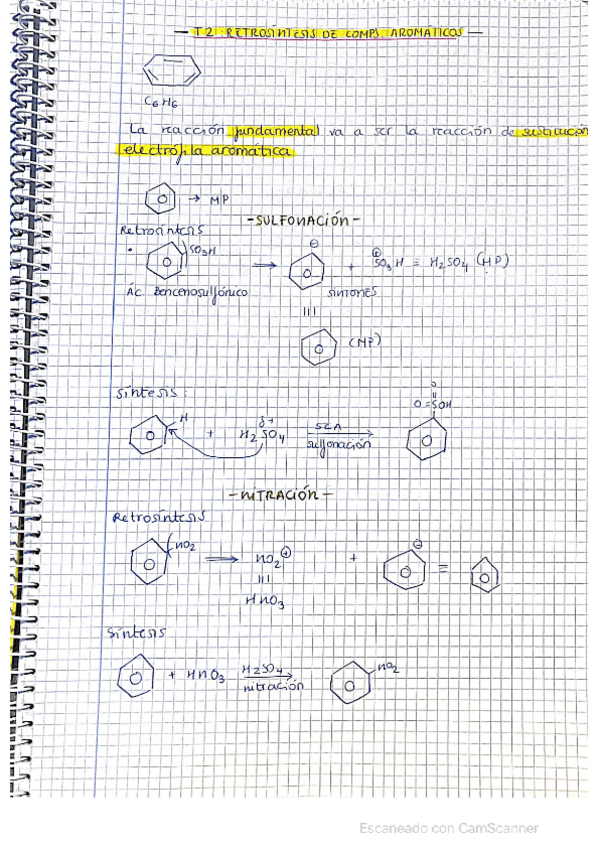 — T2: RETROSÍNTESIS DE COMPS. AROMÁTICOS —
C6H6
La reacción fundamental va a ser la reacción de sustitución
electrófila aromática
→ MP
- SULFONACIÓN -
Retrosíntesis
SO3H ⇒ ⊖ + ⊕ SO3H = H2SO4 (MP)
Ác. Bencenosulfónico sintones
≡ (MP)
Síntesis:
H + H2SO4 δ+ SEA sulfonación → O O=SOH
- NITRACIÓN -
Retrosíntesis
NO2 ⇒ NO2⊕ + ⊖ ≡
≡
HNO3
Síntesis
+ HNO3 H2SO4 nitración → NO2
Escaneado con CamScanner